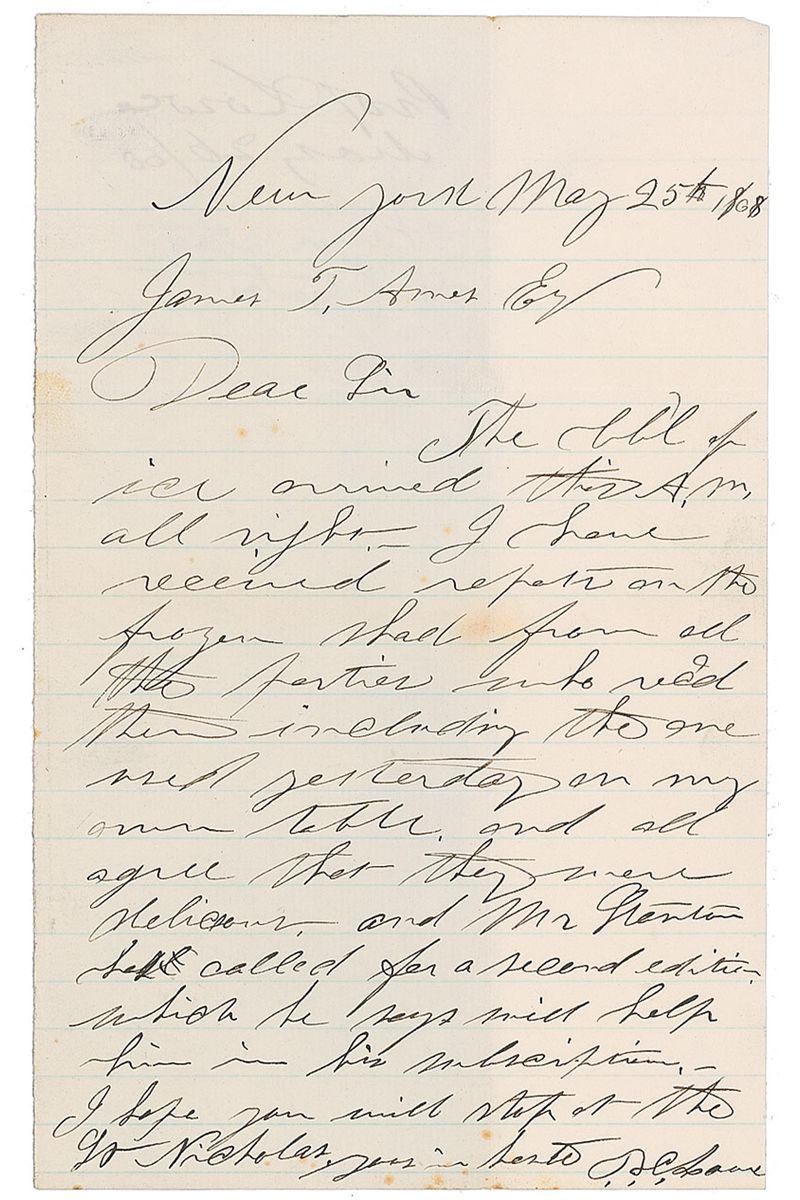 New York May 25th 1868
James T. Ames Esq
Dear Sir
The bbl of
ice arrived this A.M.
all right.— I have
received reports on the
frozen shad from all
the parties who rec'd
them including the one
used yesterday on my
own table, and all
agree that they were
delicious, and Mr Stanton
has called for a second edition
which he says will help
him in his subscription.—
I hope you will stop at the
St Nicholas, yours in haste